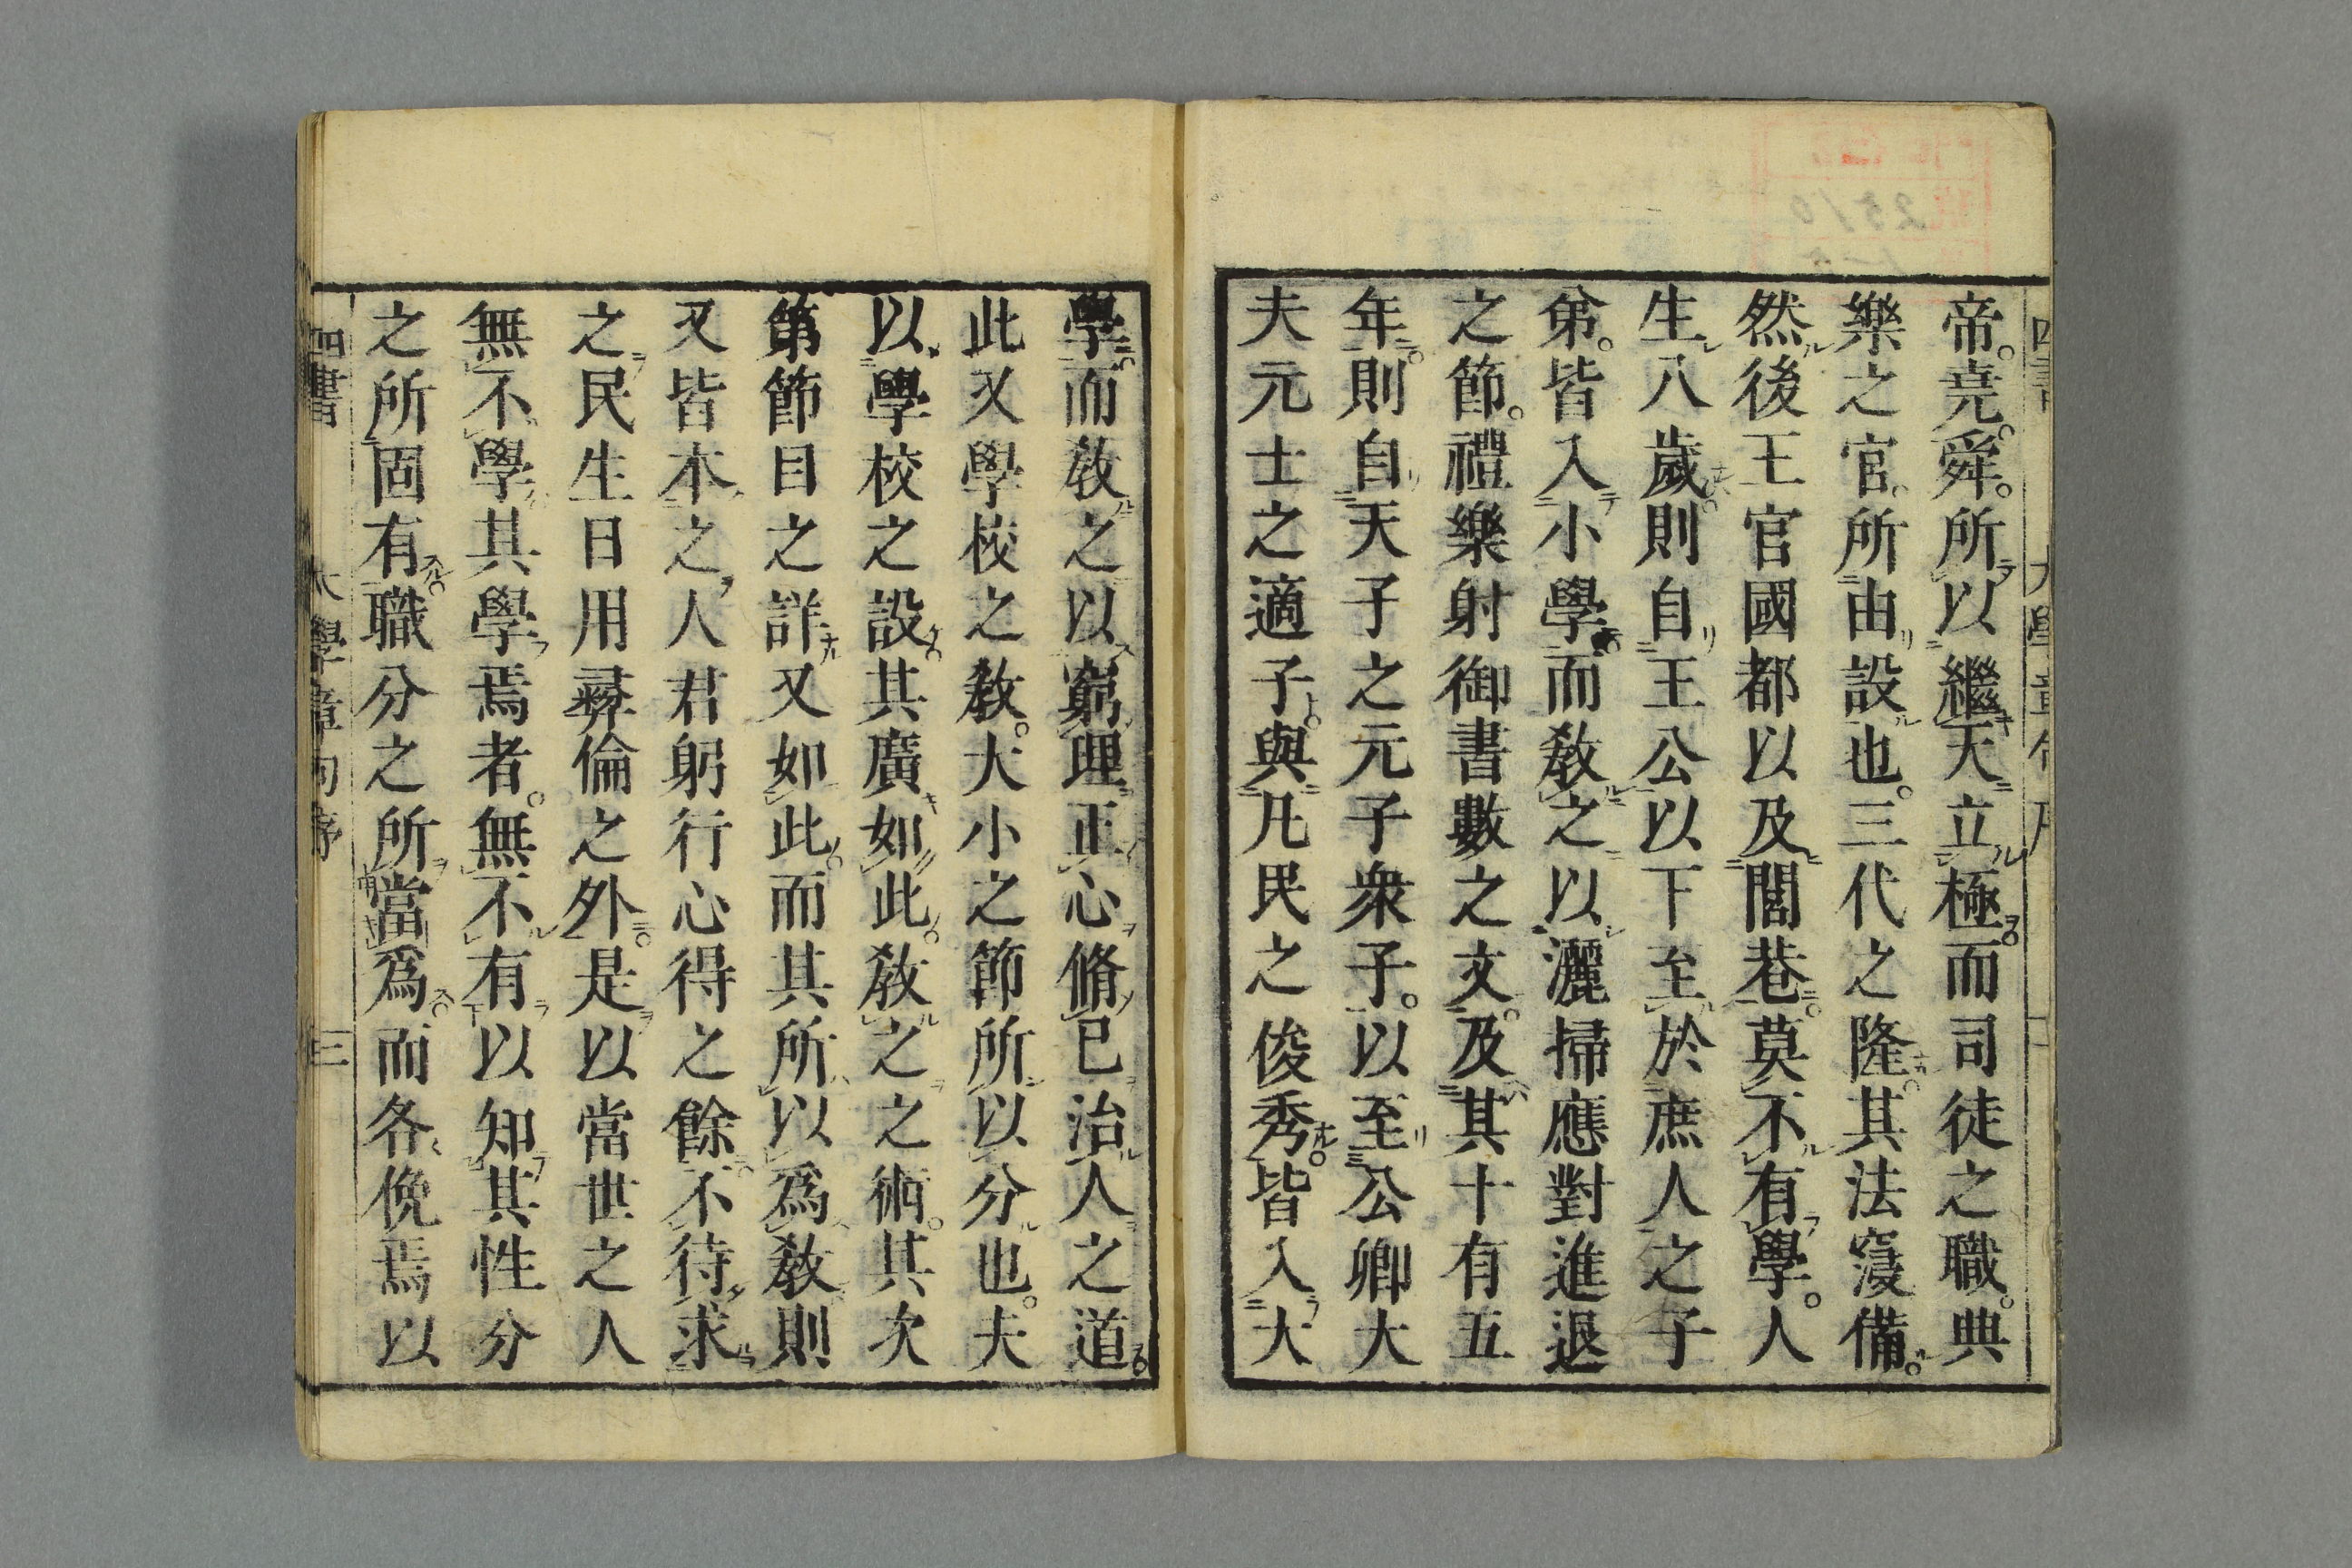 帝。堯。舜。所以繼天立極。而司徒之職。典
樂之官。所由設也。三代之隆。其法寖備。
然後王宮國都以及閭巷。莫不有學。人
生八歲。則自王公以下至於庶人之子
弟。皆入小學。而敎之以灑掃應對進退
之節。禮樂射御書數之文。及其十有五
年。則自天子之元子衆子。以至公卿大
夫元士之適子。與凡民之俊秀。皆入大
學。而敎之以窮理正心脩己治人之道。
此又學校之敎。大小之節所以分也。夫
以學校之設。其廣如此。敎之之術。其次
第節目之詳又如此。而其所以爲敎則
又皆本之人君躬行心得之餘。不待求
之民生日用彛倫之外。是以當世之人
無不學。其學焉者。無不有以知其性分
之所固有。職分之所當爲。而各俛焉以
四書 大學章句序 三